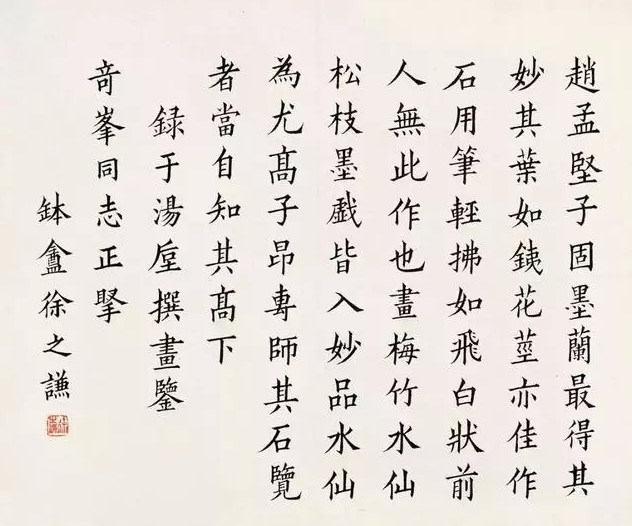 趙孟堅子固墨蘭最得其
妙其葉如銕花莖亦佳作
石用筆輕拂如飛白狀前
人無此作也畫梅竹水仙
松枝墨戲皆入妙品水仙
為尤髙子昂專師其石覽
者當自知其髙下
録于湯垕撰畫鑒
竒峯同志正擥
鉢盦徐之謙